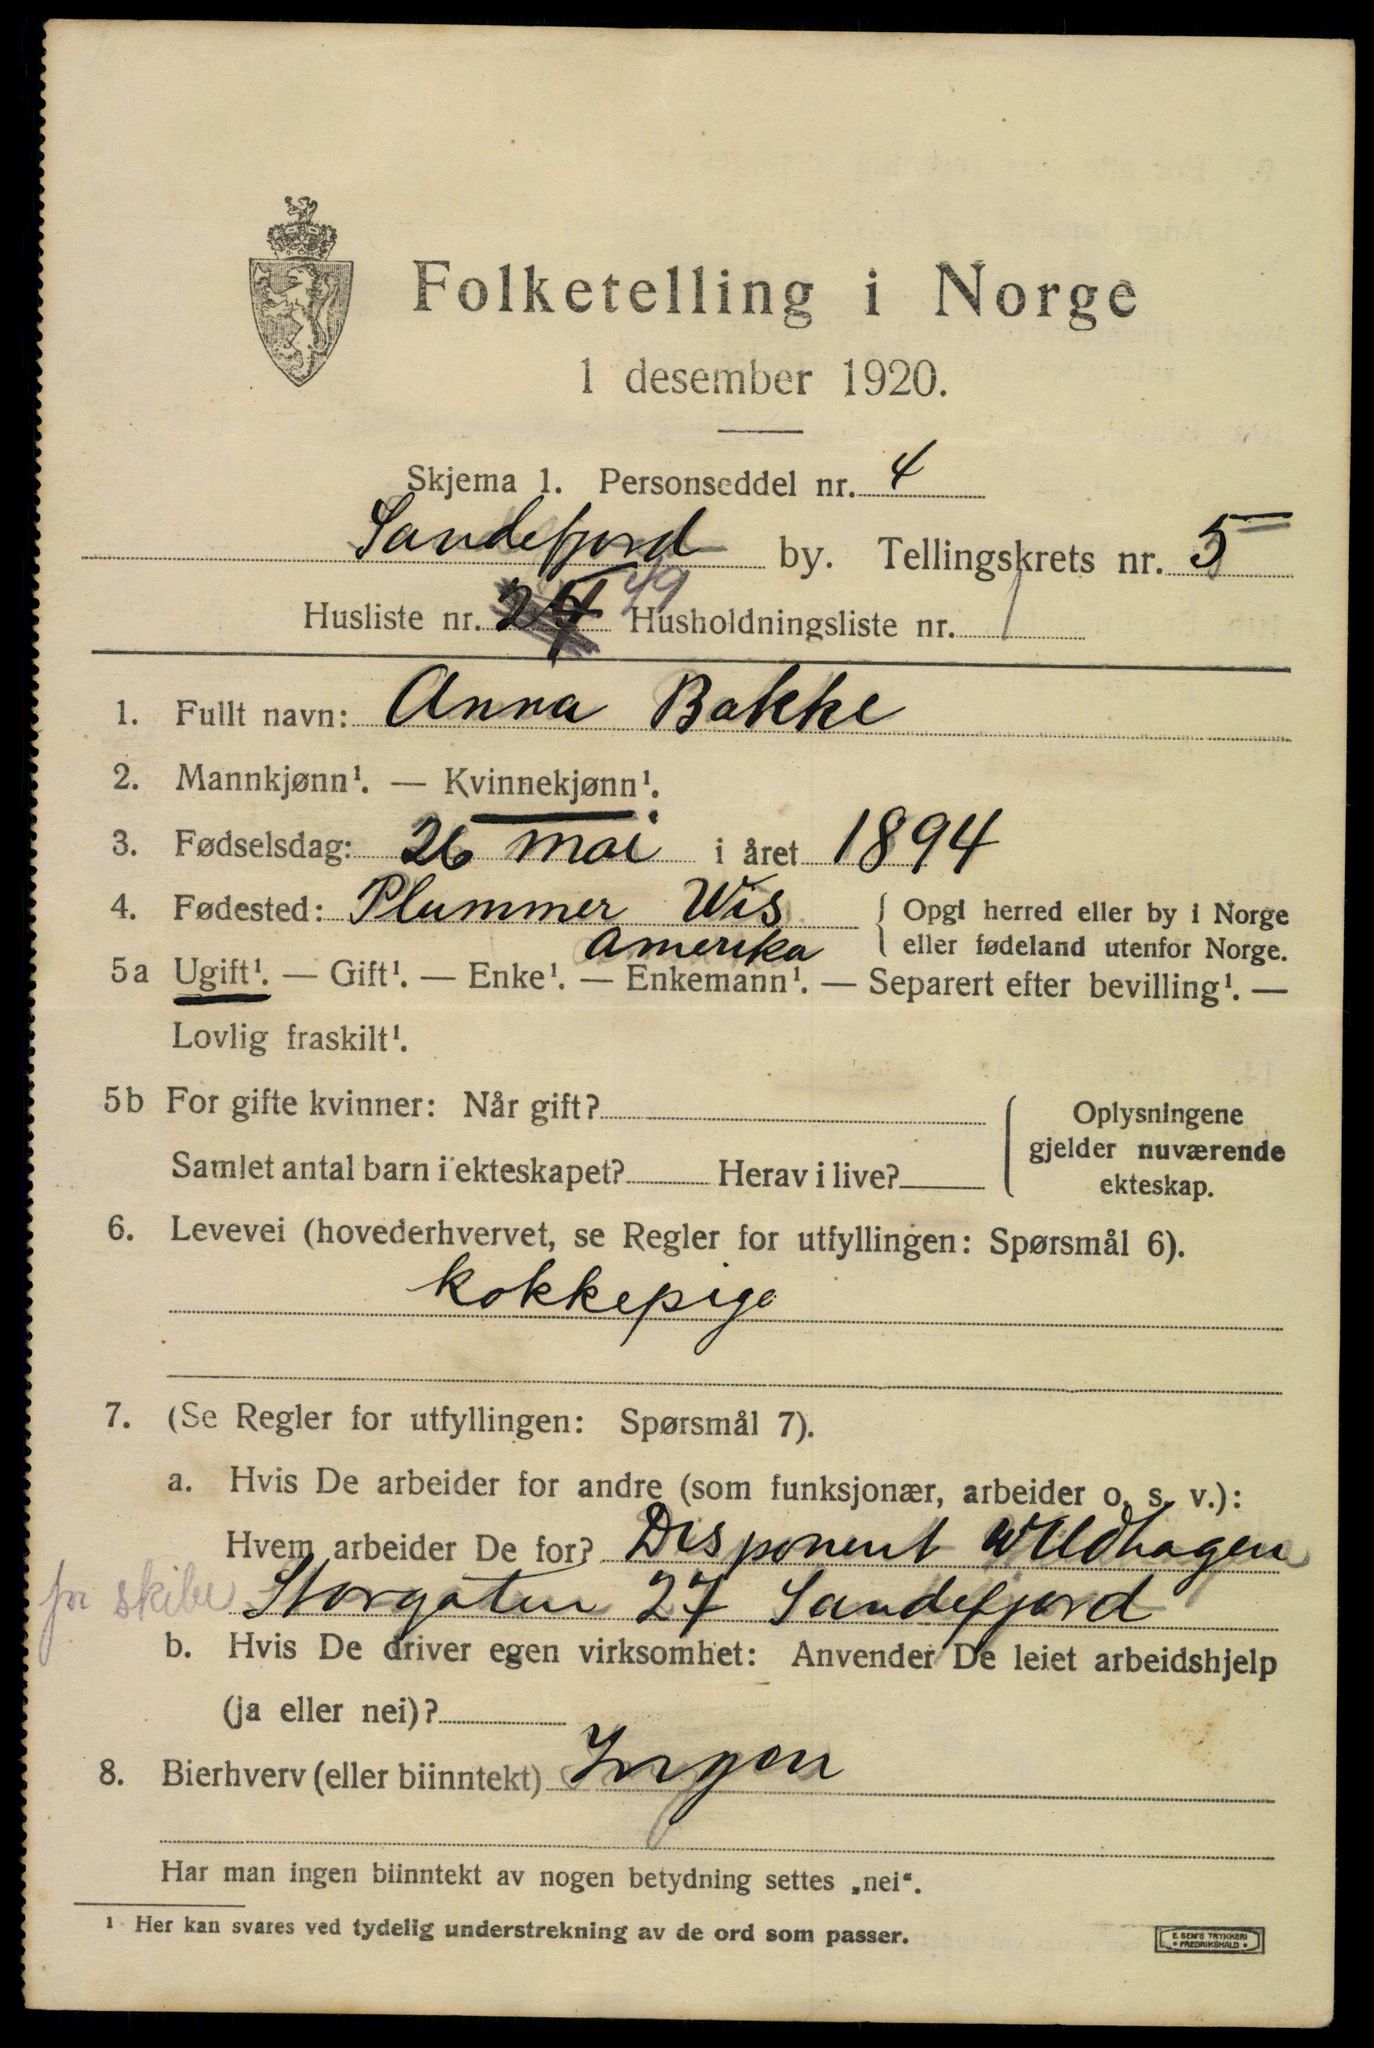 Folketelling i Norge
1 desember 1920.
Skjema 1. Personseddel nr. 4
Sandefjord by. Tellingskrets nr. 5
Husliste nr. 49 Husholdningsliste nr. 1
1. Fullt navn: Anna Bakke
2. Mannkjønn¹. — Kvinnekjønn¹.
3. Fødselsdag: 26 mai i året 1894
4. Fødested: Plummer Wis { Opgi herred eller by i Norge
amerika eller fødeland utenfor Norge.
5a Ugift¹. — Gift¹. — Enke¹. — Enkemann¹. — Separert efter bevilling¹. —
Lovlig fraskilt¹.
5b For gifte kvinner: Når gift? Oplysningene
gjelder nuværende
Samlet antal barn i ekteskapet? Herav i live? ekteskap.
6. Levevei (hovederhvervet, se Regler for utfyllingen: Spørsmål 6).
kokkepige
7. (Se Regler for utfyllingen: Spørsmål 7).
a. Hvis De arbeider for andre (som funksjonær, arbeider o. s. v.):
Hvem arbeider De for? Disponent Wildhagen
skibs Storgaten 27 Sandefjord
b. Hvis De driver egen virksomhet: Anvender De leiet arbeidshjelp
(ja eller nei)?
8. Bierhverv (eller biinntekt) Ingen
Har man ingen biinntekt av nogen betydning settes „nei“.
¹ Her kan svares ved tydelig understrekning av de ord som passer.
E. SEM'S TRYKKERI
• FREDRIKSHALD •